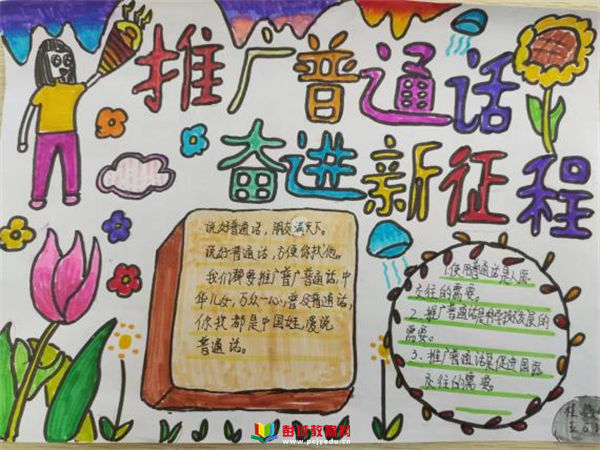 推广普通话
奋进新征程
说好普通话，朋友满天下。
说好普通话，方便你我他。
我们都要推广普广普通话，中
华儿女，万众一心，普及普通话，
你我都是中国娃，爱说
普通话。
1.使用普通话是人际
交往的需要。
2、推广普通话是科学技发展的
需要。
3、推广普通话是促进国际
交往的需要。
彭城教育网
www.pcjyedu.cn